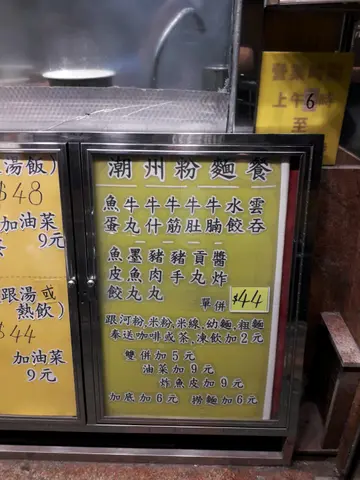 湯飯)
$48
加油菜
9元
跟湯或
熱飲)
$44
加油菜
9元
營業時間
上午6時
至
潮州粉麵餐
魚牛牛牛牛牛水雲
蛋丸什筋肚腩餃吞
魚墨豬豬貢醬
皮魚肉手丸炸
餃丸丸
單併 $44
跟河粉.米粉.米線.幼麵.粗麵
奉送咖啡或茶、凍飲加2元
雙併加5元
油菜加9元
炸魚皮加9元
加底加6元 撈麵加6元